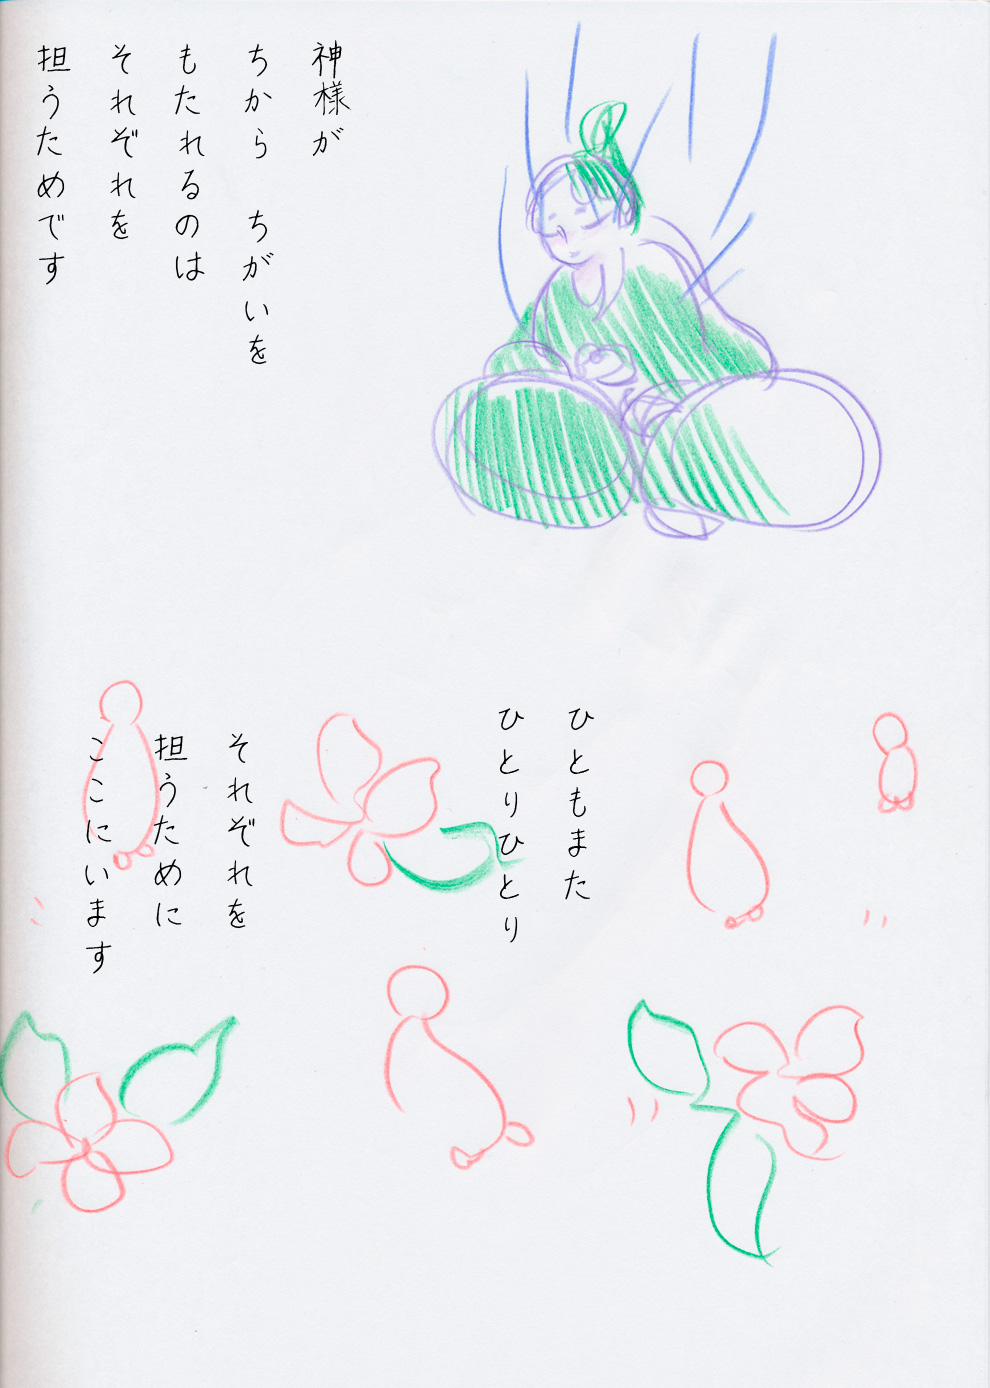 神様が
ちから　ちがいを
もたれるのは
それぞれを
担うためです
ひともまた
ひとりひとり
それぞれを
担うために
ここにいます